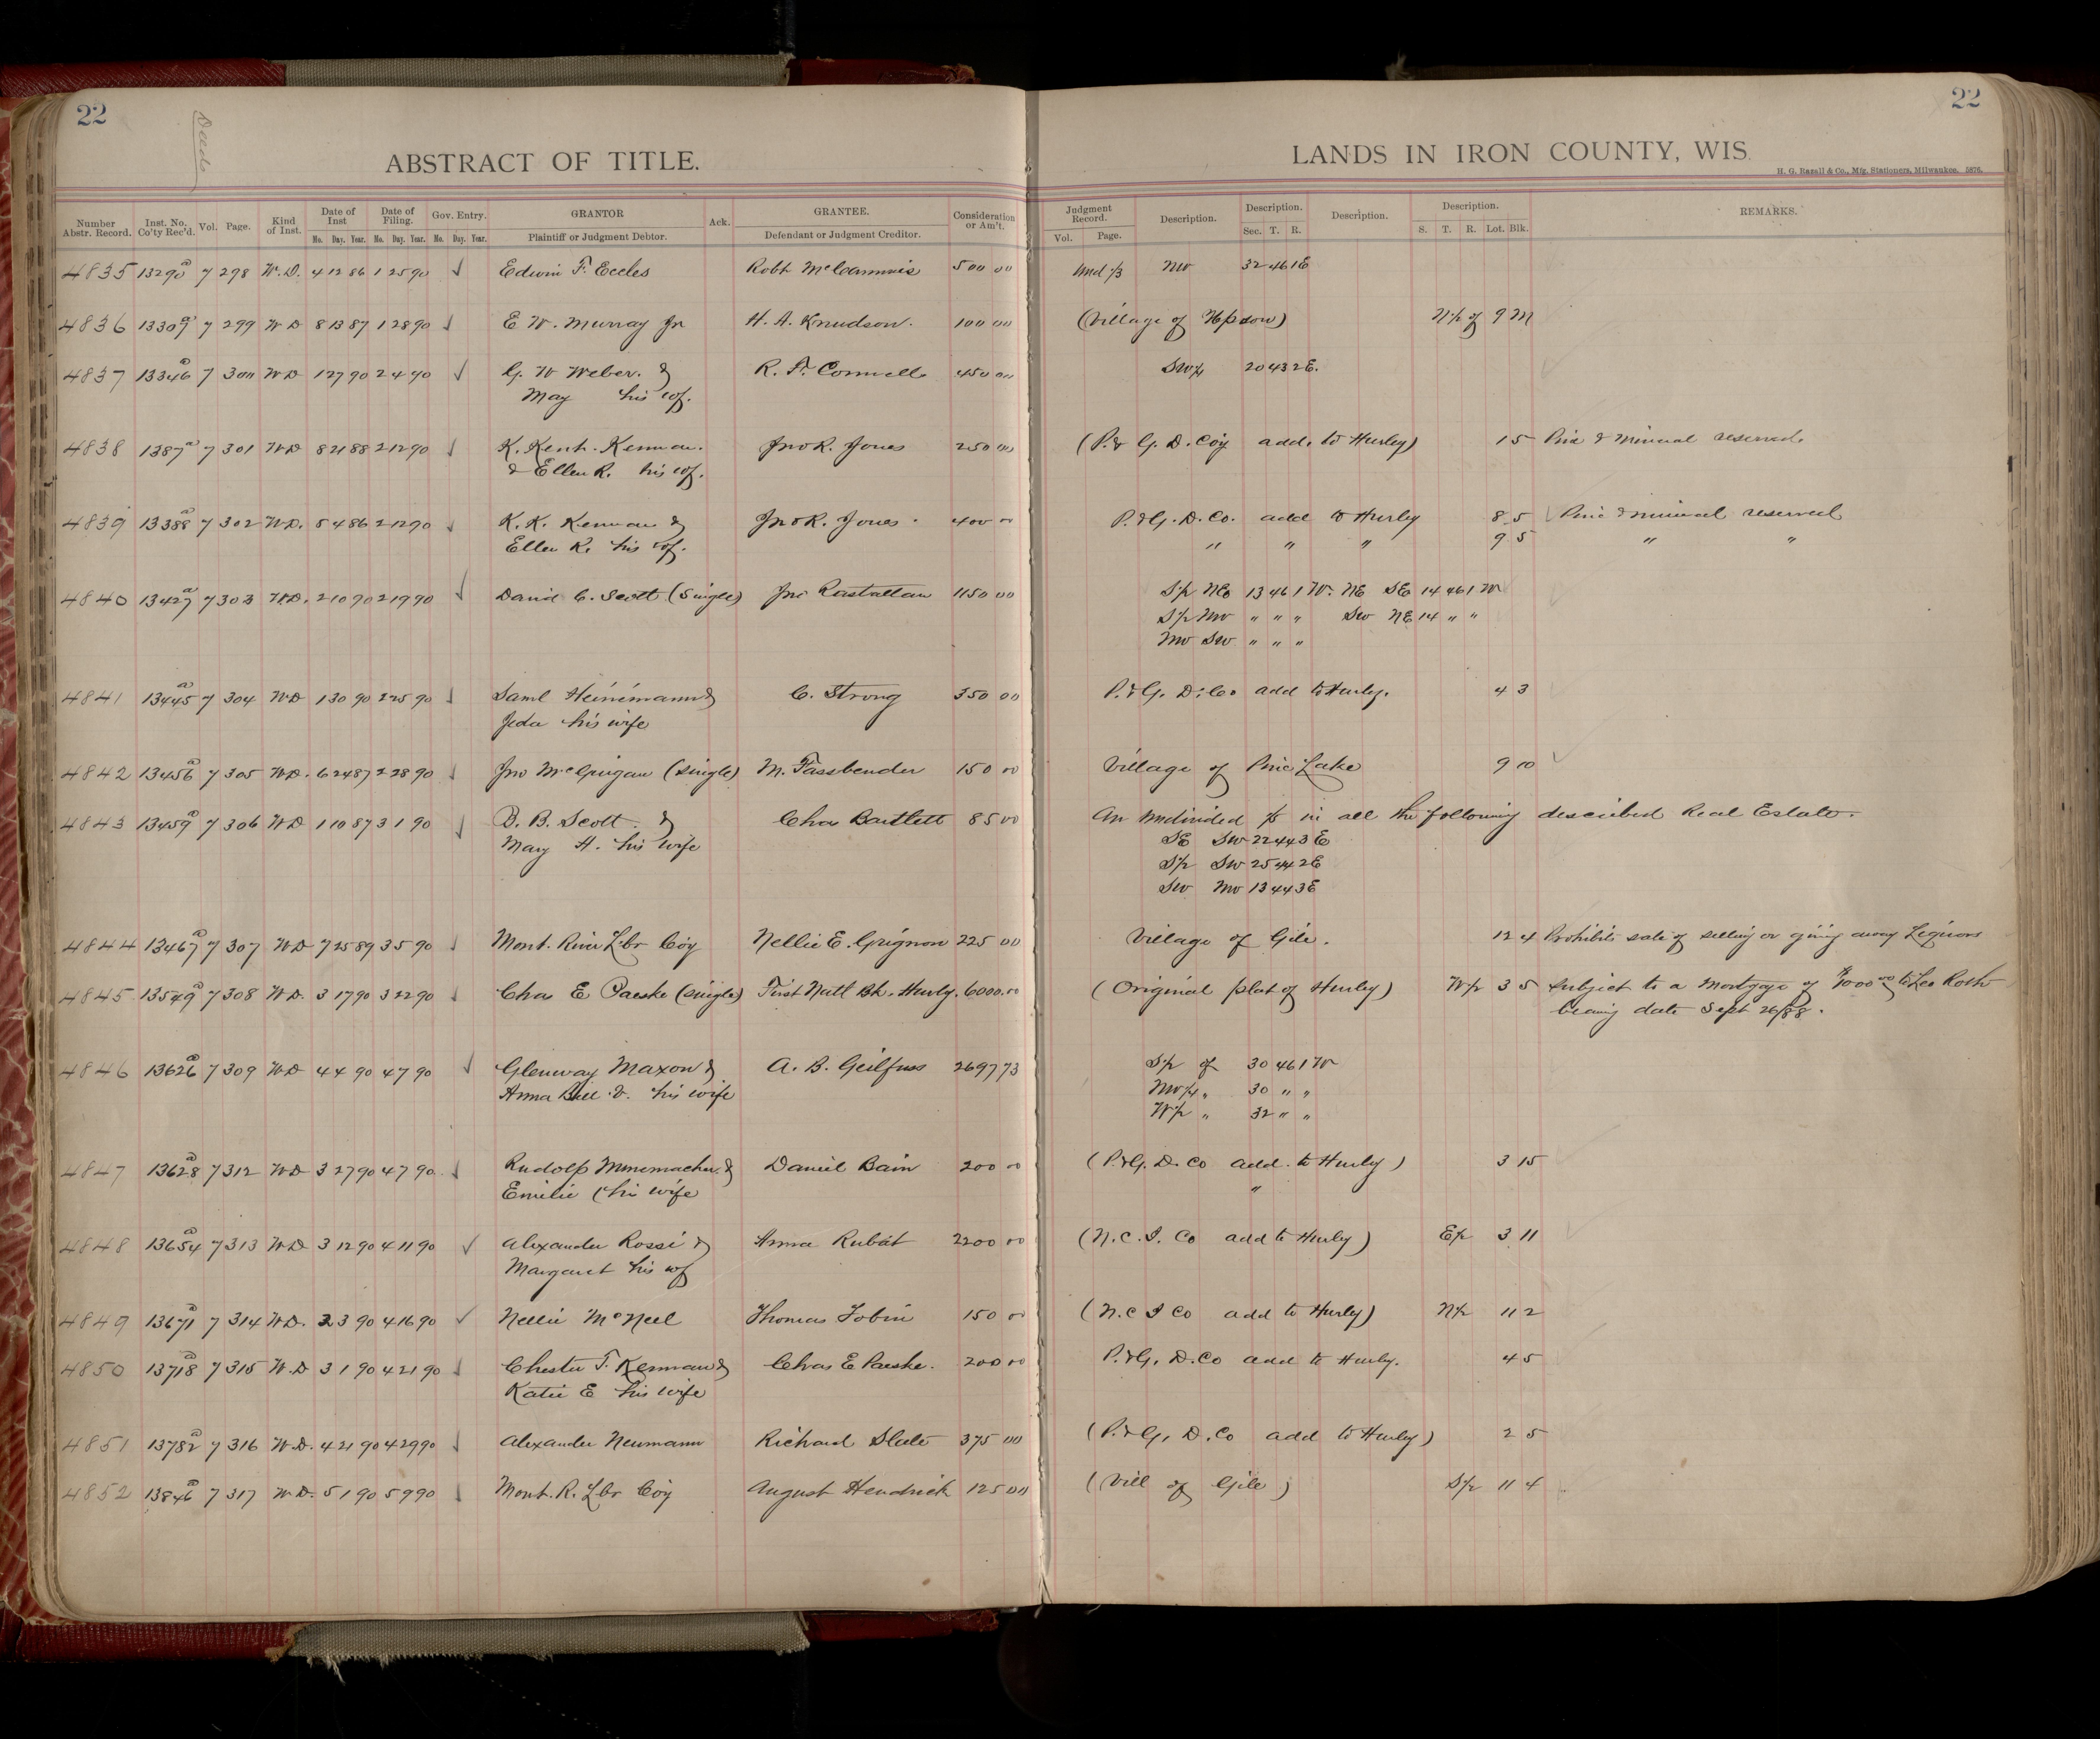 22
Deeds
ABSTRACT OF TITLE.
Number Abstr. Record. Inst. No. Co'ty Rec'd. Vol. Page. Kind of Inst. Date of Inst Mo. Day. Year. Date of Filing. Mo. Day. Year. Gov. Entry. Mo. Day. Year. GRANTOR Plaintiff or Judgment Debtor. Ack. GRANTEE. Defendant or Judgment Creditor. Consideration or Am't.
22
LANDS IN IRON COUNTY, WIS.
H. G. Razall & Co., Mfg. Stationers, Milwaukee. 5876.
Judgment Record. Vol. Page. Description. Description. Sec. T. R. Description. Description. S. T. R. Lot. Blk. REMARKS.
4835 13290 a 7 298 W.D. 4 12 86 1 25 90 ✓ Edwin F. Eccles Robt 500 00 Und 1/3 NW 32 46 1E
4836 13309 a 7 299 W D 8 13 87 1 28 90 ✓ E. W. Murray Jr H. A. Knudson. 100 00 (Village of Upson) N 1/2 of 9 M
4837 13346 a 7 300 W D 1 27 90 2 4 90 ✓ G. W Weber. & R. F. 450 00 SW 1/4 20 43 2E.
May his wf.
4838 1387 a 7 301 W D 8 21 88 2 12 90 ✓ K. Kent. Kennan. Jno R. Jones 250 00 (P. & G. D. Coy add. to Hurley) 1 5 Pine & Mineral reserved.
& Ellen R. his wf.
4839 13388 a 7 302 W.D. 5 4 86 2 12 90 ✓ K. K. Kennan & Jno R. Jones. 400 00 P. & G. D. Co. add to Hurley 8 5 ✓ Pine & mineral reserved
Ellen R. his wf. " " " 9 5 " "
4840 13427 a 7 303 W.D. 2 10 90 2 19 90 ✓ David C. Scott (Single) Jno 1150 00 S 1/2 NE 13 46 1 W. NE SE 14 46 1 W
S 1/2 NW " " " SW NE 14 " "
NW SW " " "
4841 13445 a 7 304 W D 1 30 90 2 25 90 ✓ Saml Heinemann & C. Strong 350 00 P. & G. D. Co add to Hurley. 4 3
Jeda his wife
4842 13456 a 7 305 W.D. 6 24 87 2 28 90 ✓ Jno McGuigan (single) M. Fassbender 150 00 Village of Pine Lake 9 10 ✓
4843 13459 a 7 306 W D 1 10 87 3 1 90 ✓ B. B. Scott & Chas Bartlett 85 00 An Undivided in all the following described Real Estate.
Mary H. his wife SE SW 22 44 3 E
S 1/2 SW 25 44 2E
SW NW 13 44 3E
4844 13467 a 7 307 W D 7 25 89 3 5 90 ✓ Mont. River Lbr Coy Nellie E. Grignon 225 00 Village of Gile. 12 4 Prohibits sale of selling or giving away Liquors
4845 13549 a 7 308 W D. 3 17 90 3 22 90 ✓ Chas E Paeske (single) First Natl Bk. Hurly. 6000.00 (Original plat of Hurley) W 1/2 3 5 Subject to a Mortgage of $1000 00 to Leo Roth
bearing date Sept 26/88.
4846 13626 a 7 309 W D 4 4 90 4 7 90 ✓ Glenway Maxon & A. B. Geilfuss 2697 73 S 1/2 of 30 46 1 W
Anna his wife NW 1/4 " 30 " "
W 1/2 " 32 " "
4847 13628 a 7 312 W D 3 27 90 4 7 90 ✓ Rudolf & Daniel Bain 200 00 (P. & G. D. Co add. to Hurley) 3 15
Emilie (his wife "
4848 13654 a 7 313 W D 3 12 90 4 11 90 ✓ Alexander Rossi & Anna Rubat 2200 00 (N. C. I. Co add to Hurley) E 1/2 3 11
Margaret his wf
4849 13671 a 7 314 W D. 2 3 90 4 16 90 ✓ Nellie McNeel Thomas Tobin 150 00 (N. C I Co add to Hurley) N 1/2 11 2
4850 13718 a 7 315 W.D 3 1 90 4 21 90 ✓ Chester F. Kennan & Chas E Paeske. 200 00 P. & G. D. Co add to Hurley. 4 5
Katie E his wife
4851 13782 a 7 316 W.D. 4 21 90 4 29 90 ✓ Alexander Neumann Richard 375 00 (P. & G. D. Co add to Hurley) 2 5
4852 13846 a 7 317 W.D. 5 1 90 5 9 90 ✓ Mont. R. Lbr Coy August Hendrick 125 00 (Vill of Gile) S 1/2 11 4